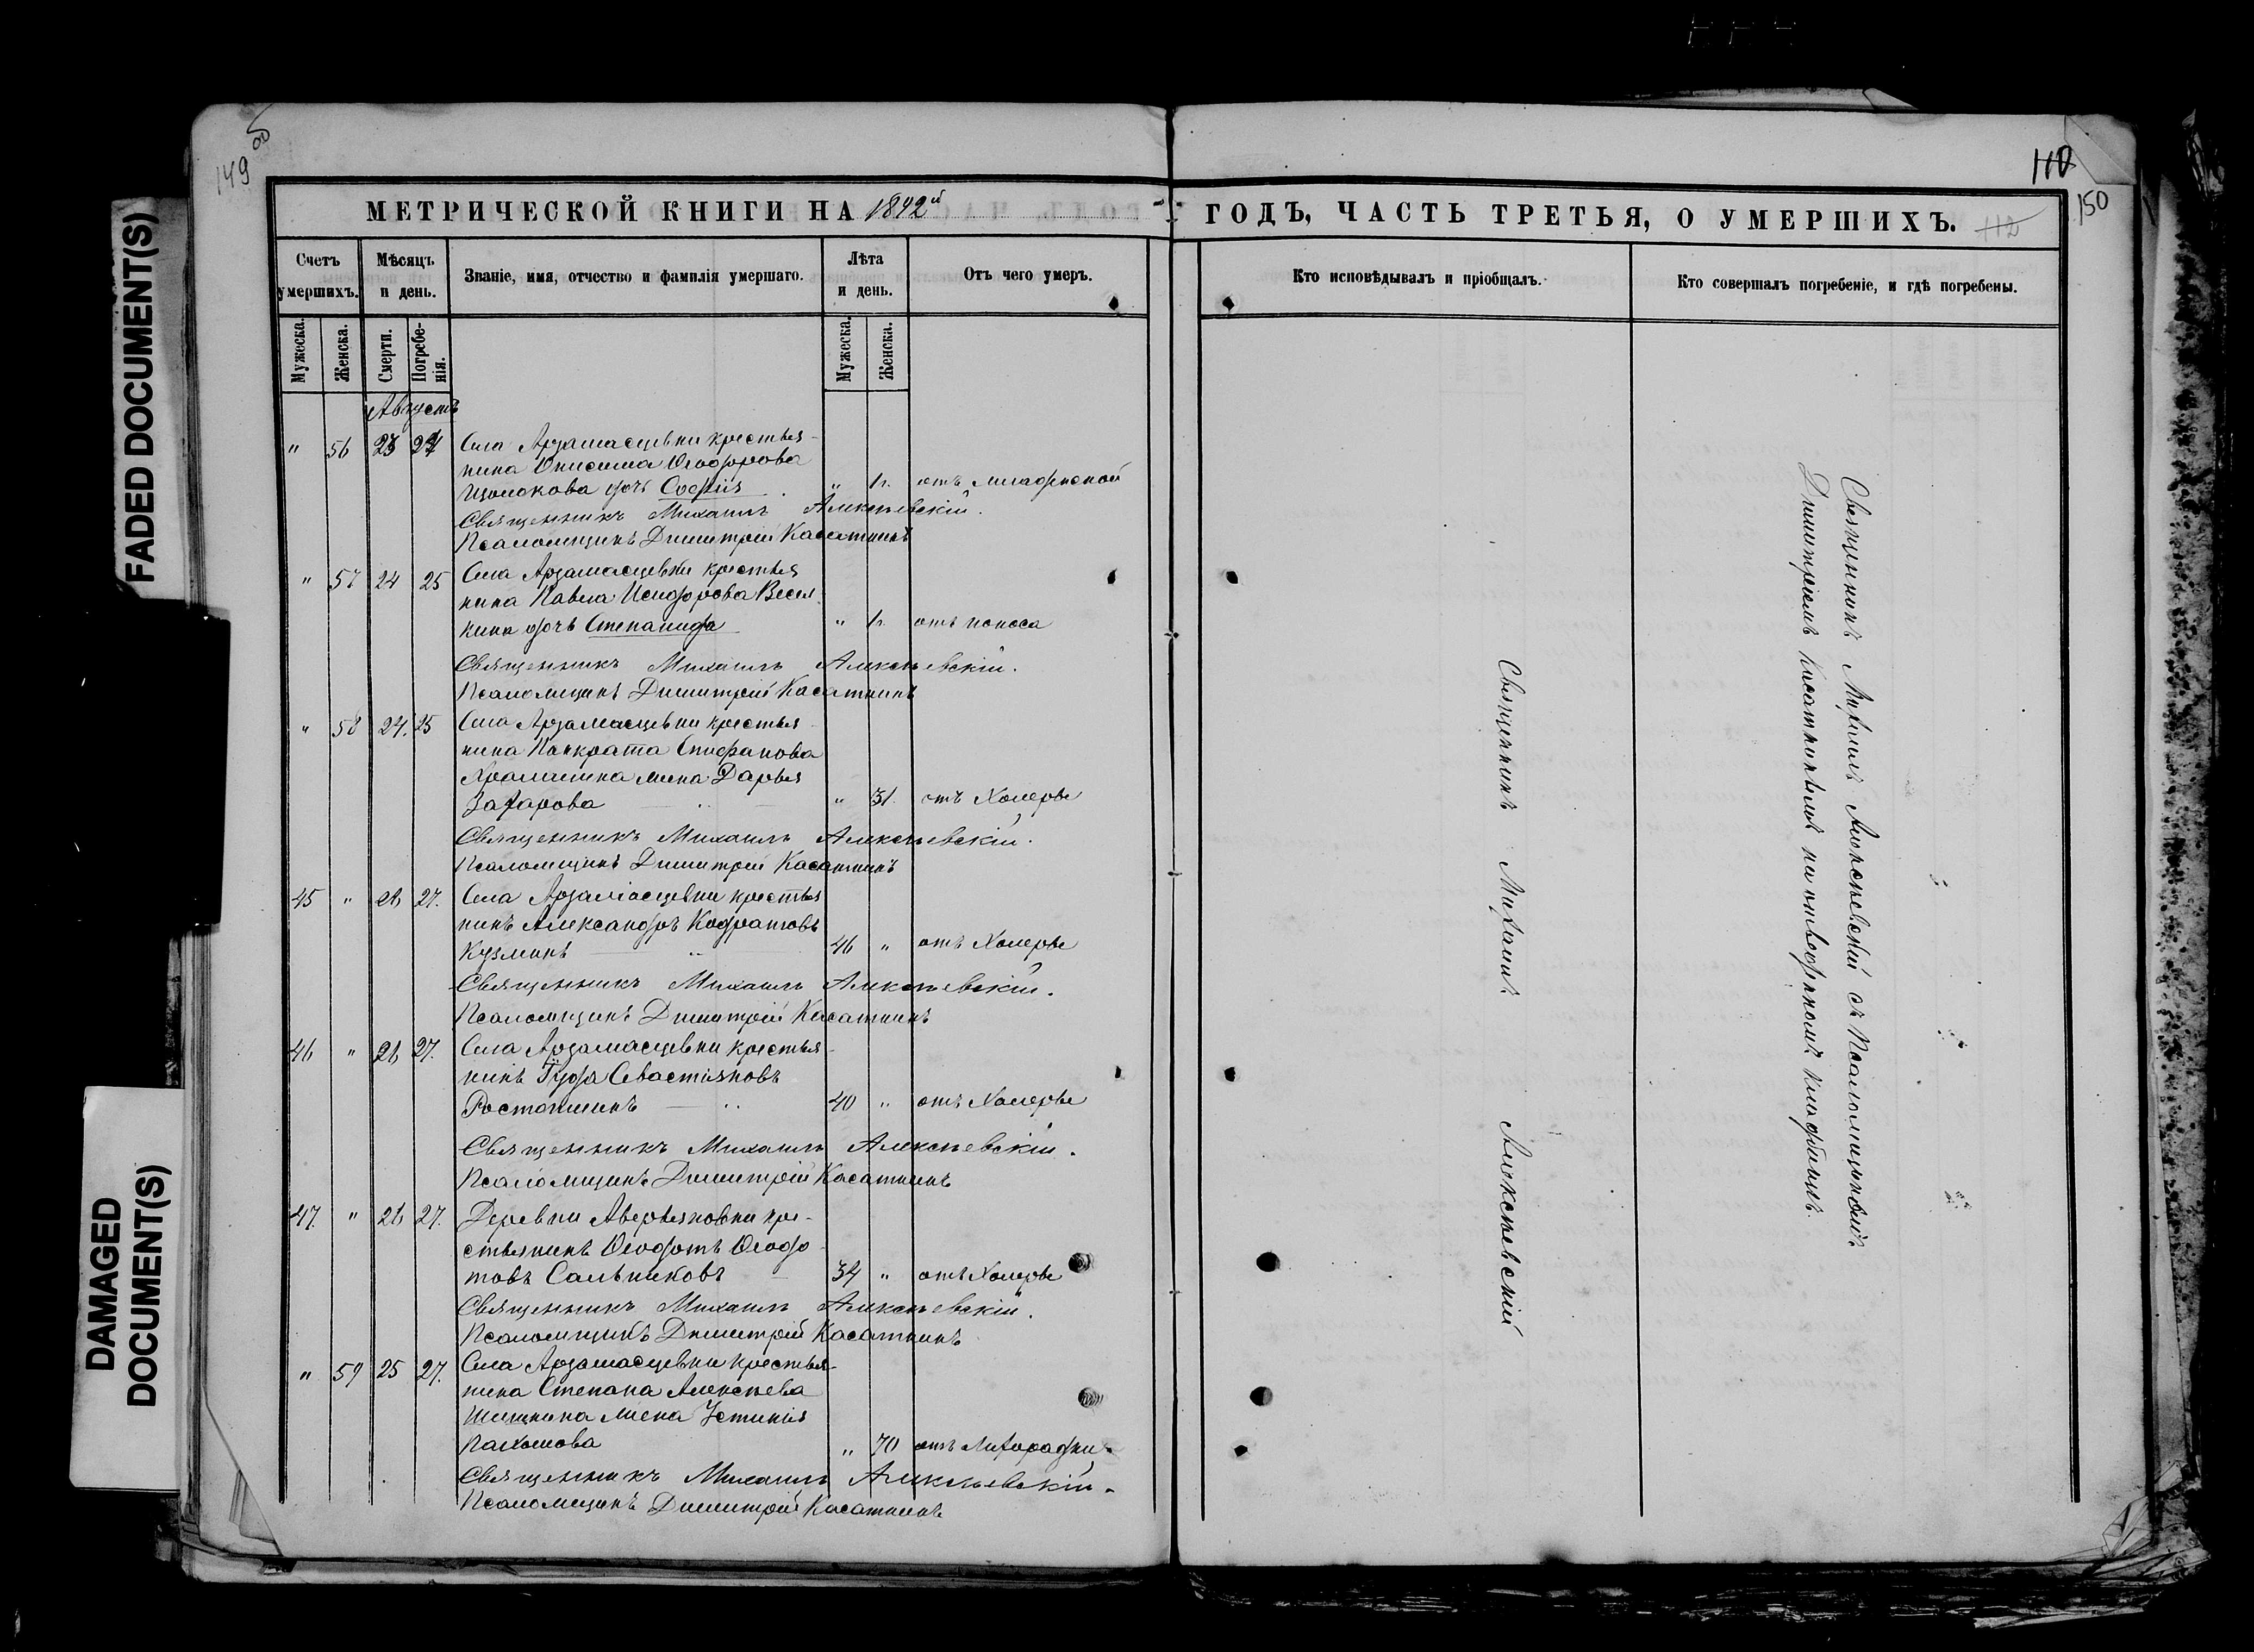 FADED DOCUMENT(S)
DAMAGED
DOCUMENT(S)
149 об
МЕТРИЧЕСКОЙ КНИГИ НА 1892й
Счетъ умершихъ.
Мѣсяцъ и день.
Званіе, имя, отчество и фамилія умершаго.
Лѣта и день.
Отъ чего умеръ.
Мужеска.
Женска.
Смерти.
Погребе-
нія.
Мужеска.
Женска.
Августъ
" 56 23 24 Села Арзамасцевки крестья-
нина Онисима Ѳеодорова
Щолокова дочь Софія " 1г. отъ младенской
Священникъ Михаилъ Алексѣевскій.
Псаломщикъ Димитрій Касаткинъ
" 57 24 25 Села Арзамасцевки крестья
нина Павла Исидорова Весел
кина дочь Степанида " 1г. отъ поноса
Священникъ Михаилъ Алексѣевскій.
Псаломщикъ Димитрій Касаткинъ
" 58 24. 25 Села Арзамасцевки крестья-
нина Панкрата Епифанова
жена Дарья
Захарова " 31. отъ Холеры
Священникъ Михаилъ Алексѣевскій.
Псаломщикъ Димитрій Касаткинъ
45 " 26 27. Села Арзамасцевки крестья
нинъ Александръ Кодратовъ
Кузминъ 46 " отъ Холеры
Священникъ Михаилъ Алексѣевскій.
Псаломщикъ Димитрій Касаткинъ
46 " 26 27. Села Арзамасцевки крестья-
нинъ Гурій Севастіановъ
Растопшинъ 40 " отъ Холеры
Священникъ Михаилъ Алексѣевскій.
Псаломщикъ Димитрій Касаткинъ
47. " 26 27. Деревни Аверьяновки кре-
стьянинъ Ѳеодотъ Ѳеодо
товъ Сальниковъ 34 " отъ Холеры
Священникъ Михаилъ Алексѣевскій.
Псаломщикъ Димитрій Касаткинъ
" 59 25 27. Села Арзамасцевки крестья-
нина Степана Алексѣева
Шишкина жена Устинія
Пахомова " 70 отъ Лихорадки.
Священникъ Михаилъ Алексѣевскій.
Псаломщикъ Димитрій Касаткинъ
110
150
112
ГОДЪ, ЧАСТЬ ТРЕТЬЯ, О УМЕРШИХЪ.
Кто исповѣдывалъ и пріобщалъ.
Кто совершалъ погребеніе, и гдѣ погребены.
Священникъ Михаилъ Алексѣевскій
Священникъ Михаилъ Алексѣевскій съ Псаломщикомъ
Димитріемъ Касаткинымъ на отведенномъ кладбищѣ.